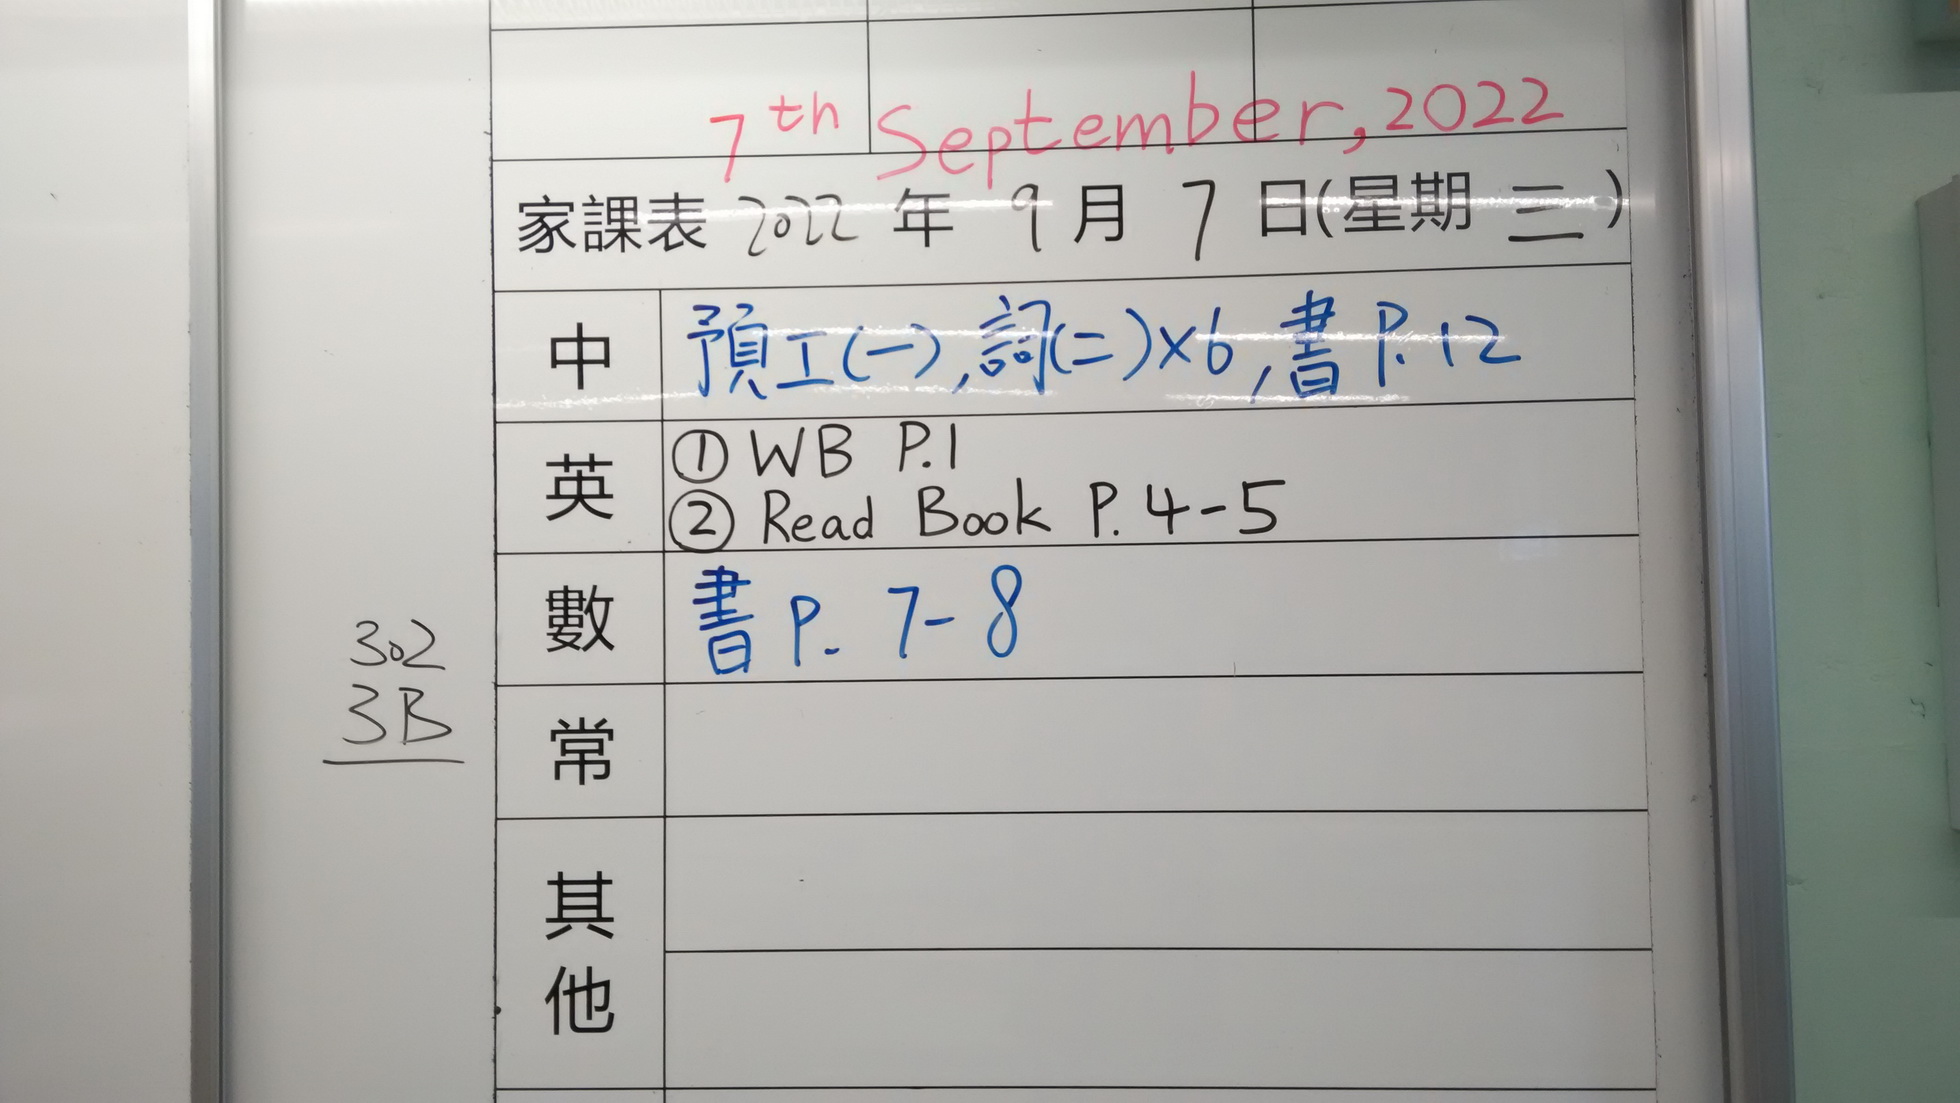 7th September, 2022
家課表 2022 年 9 月 7 日(星期 三)
中 預工(一), 詞(二)×6, 書 P.12
英 ① WB P.1
② Read Book P. 4-5
數 書 P. 7-8
302
3B
常
其他